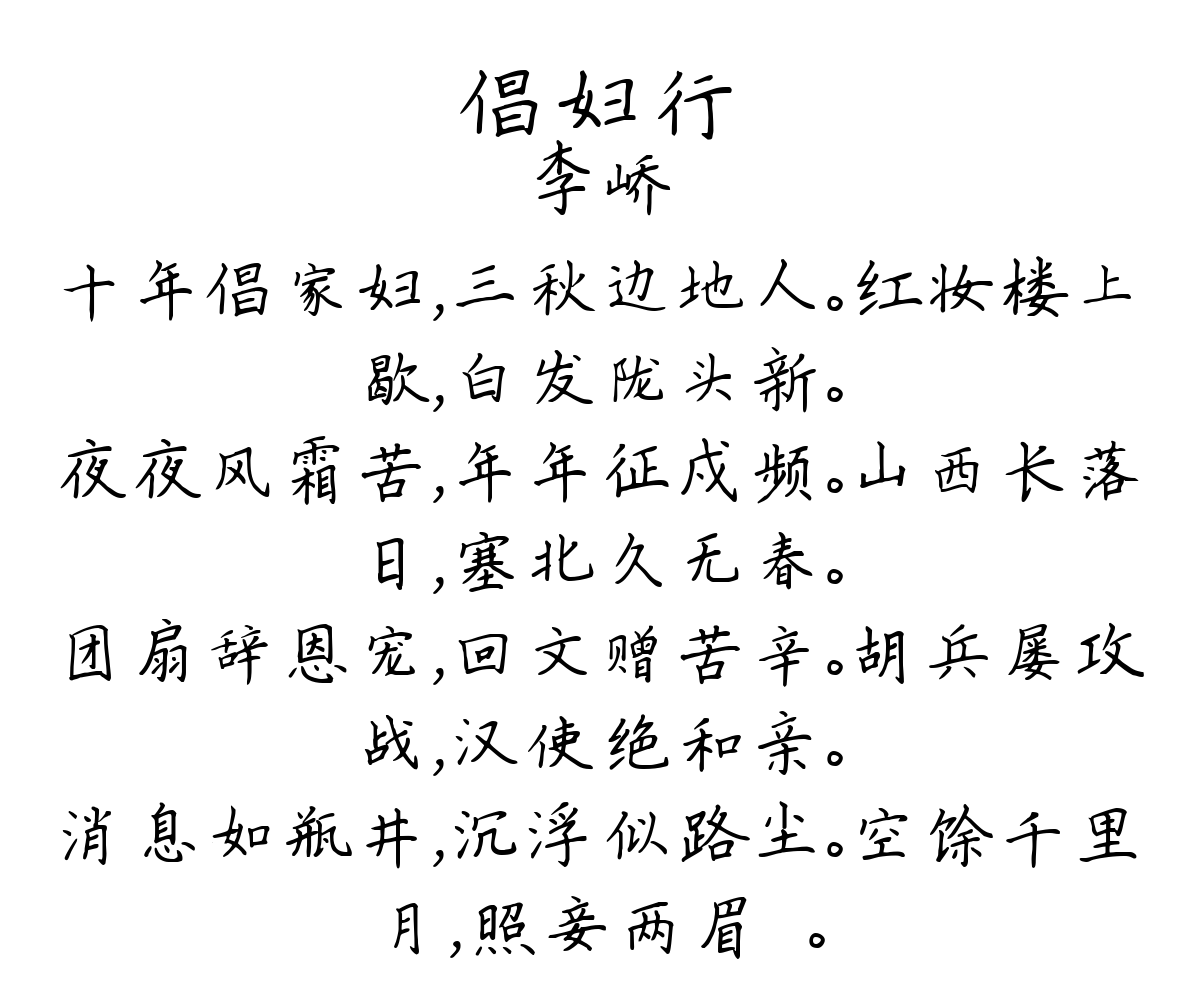 倡妇行
李峤
十年倡家妇,三秋边地人。红妆楼上
歇,白发陇头新。
夜夜风霜苦,年年征戍频。山西长落
日,塞北久无春。
团扇辞恩宠,回文赠苦辛。胡兵屡攻
战,汉使绝和亲。
消息如瓶井,沉浮似路尘。空馀千里
月,照妾两眉 。